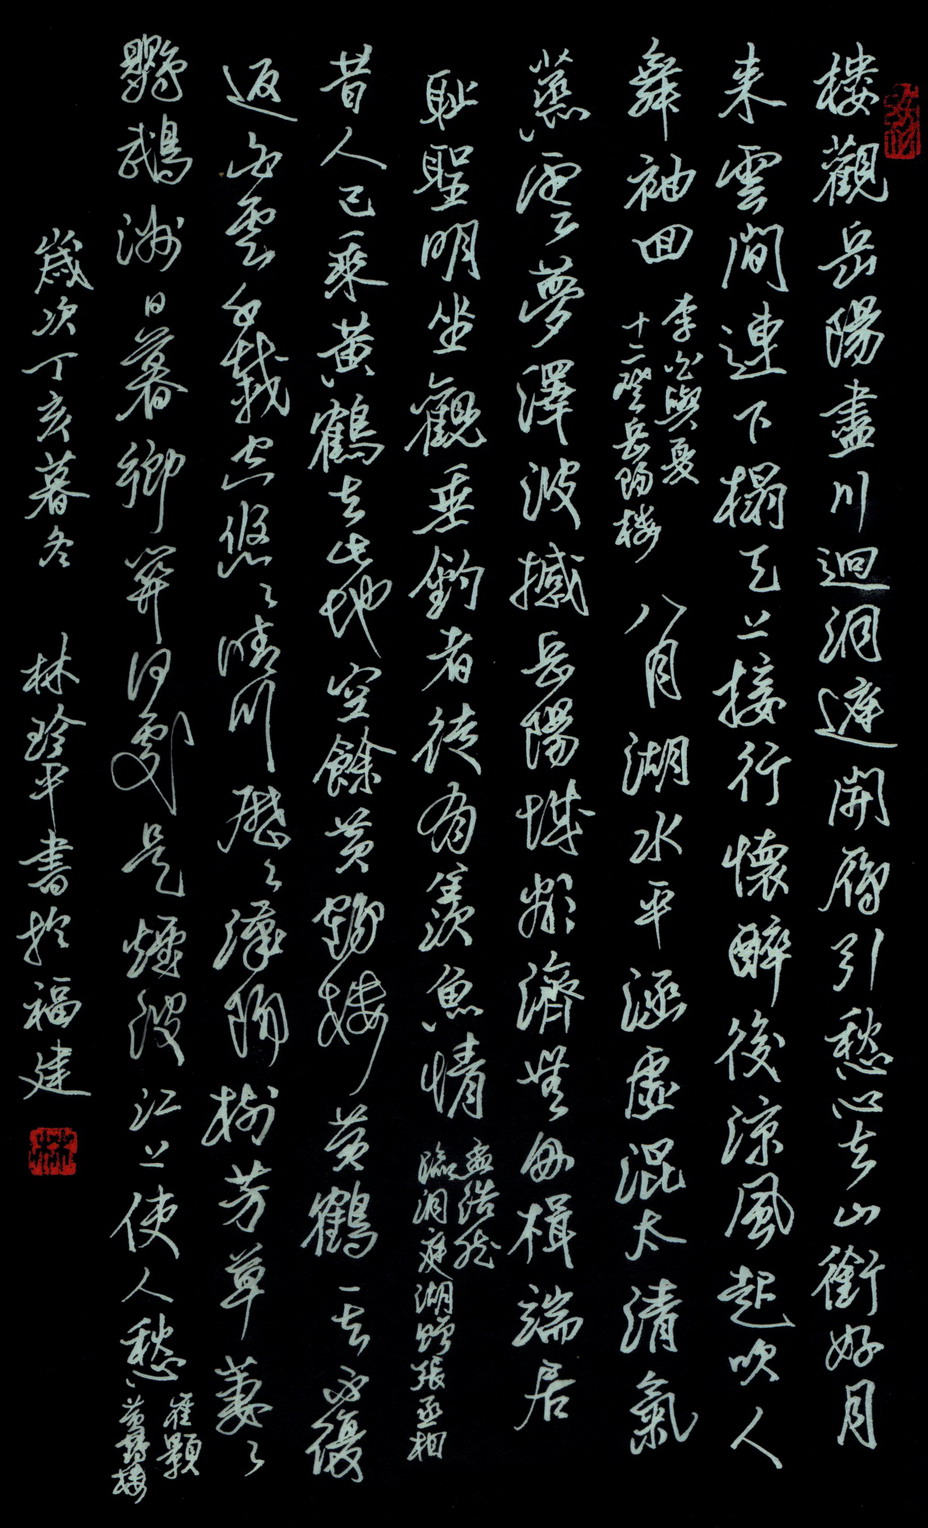 樓觀岳陽盡川迴洞庭開雁引愁心去山銜好月
來雲間連下榻天上接行懷醉後涼風起吹人
舞袖回
李白與夏
十二登岳陽樓
八月湖水平涵虛混太清氣
蒸雲夢澤波撼岳陽城欲濟無舟楫端居
耻聖明坐觀垂釣者徒有羨魚情
孟浩然
臨洞庭湖贈張丞相
昔人已乘黃鶴去此地空餘黃鶴樓黃鶴一去不復
返白雲千載空悠々晴川歷々漢陽樹芳草萋々
鸚鵡洲日暮鄉關何處是煙波江上使人愁
崔顥
黃鶴樓
歲次丁亥暮冬 林珍平書於福建
林